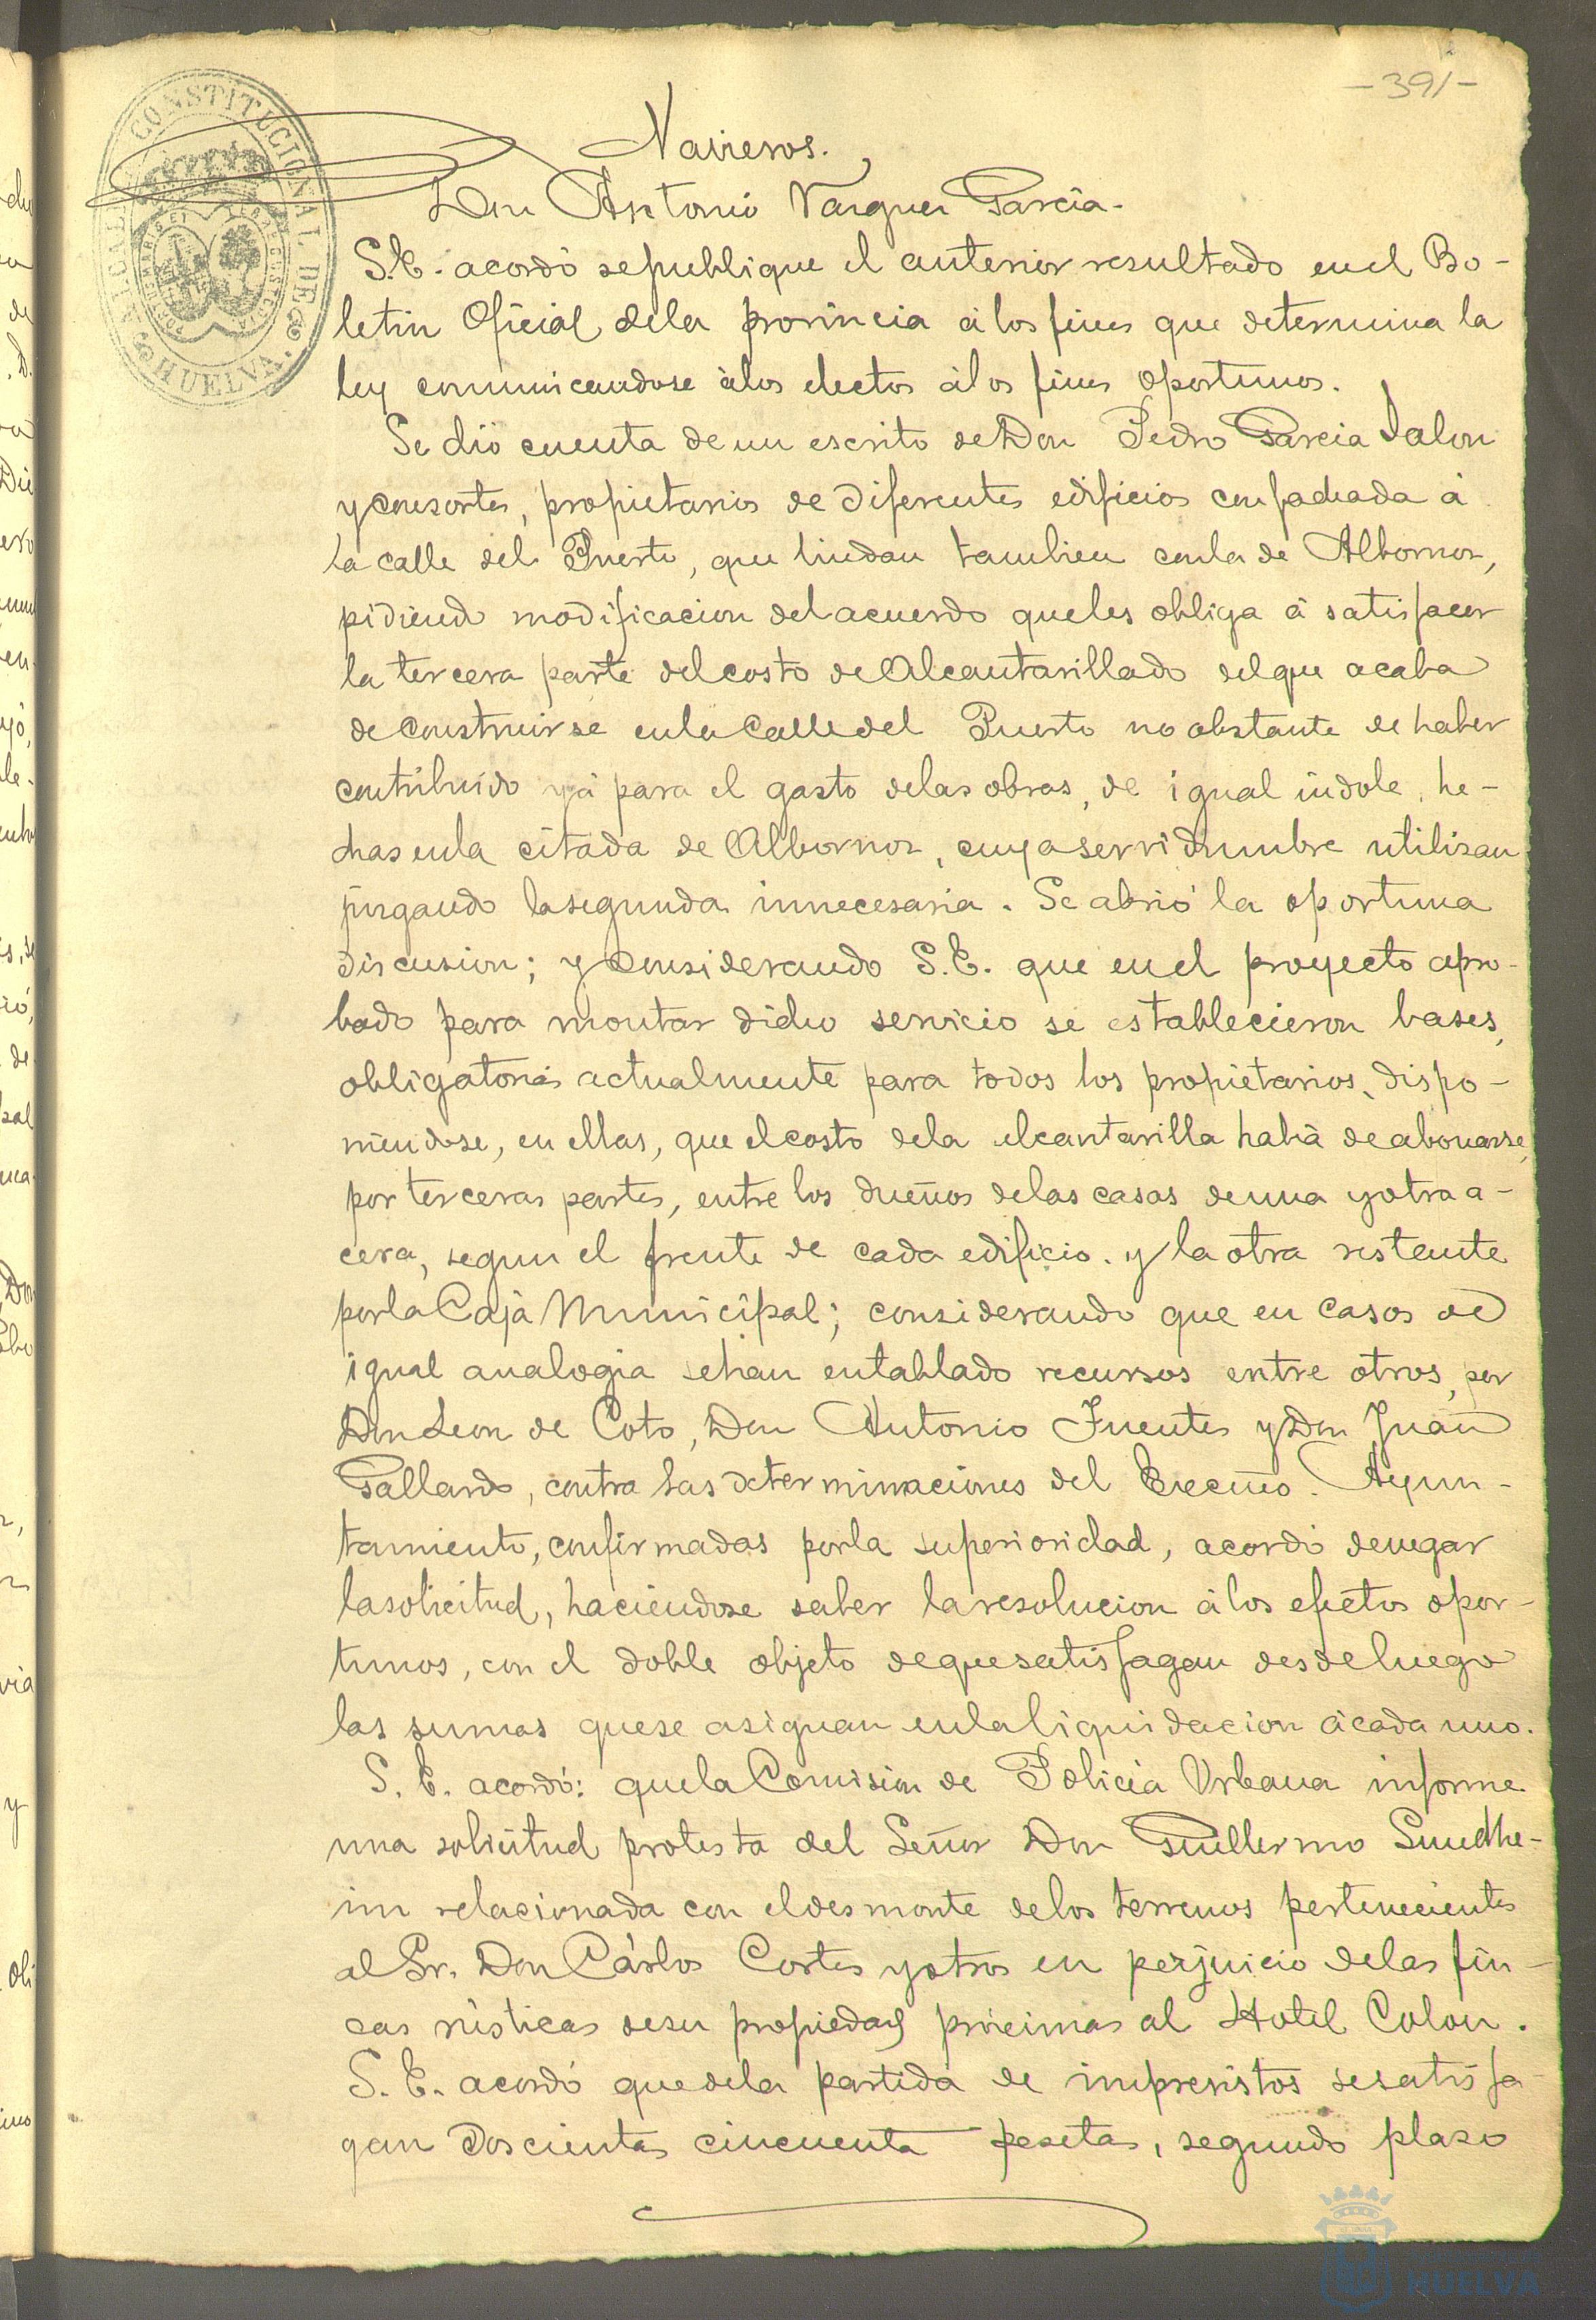 -39/-
ALCALDIA CONSTITUCIONAL DE HUELVA.
Navieros.
Don Antonio Vazquez García.
S.E. acordó sepublique el anterior resultado enel Bo-
letin Oficial dela provincia álos fines que determina la
ley comunicandose álos electos álos fines oportunos.
Se dió cuenta deun escrito deDon Pedro Garcia Jalon
yconsortes, propietarios de diferentes edificios confachada á
la calle del Puerto, que lindan tambien conla de Albornoz,
pidiendo modificacion delacuerdo queles obliga á satisfacer
la tercera parte delcosto deAlcantarillado delque acaba
deconstruirse enlaCalledel Puerto no obstante de haber
contribuido yá para el gasto delasobras, de igual indole, he-
chasenla citada de Albornoz, cuyaservidumbre utilizan
juzgando lasegunda innecesaria. Se abrió la oportuna
discusion; yconsiderando S.E. que enel proyecto apro-
bado para montar dicho servicio se establecieron bases,
obligatorias actualmente para todos los propietarios, dispo-
niendose, en ellas, que elcosto dela alcantarilla habiá deabonarse,
por terceras partes, entre los dueños delas casas deuna yotra a-
cera, segun el frente de cada edificio. y la otra restante
porla Caja Municipal; considerando que en casos de
igual analogia sehan entablado recursos entre otros, por
Don Leon de Coto, Don Antonio Fuentes y Don Juan
Gallardo, contra las determinaciones del Excmo. Ayun-
tamiento, confirmadas porla superioridad, acordó denegar
lasolicitud, haciendose saber laresolucion álos efectos opor-
tunos, con el doble objeto dequesatisfagan desdeluego
las sumas quese asignan enlaliquidacion ácada uno.
S. E. acordó: quela Comision de Policia Urbana informe
una solicitud protesta del Señor Don Guillermo Sundhe-
im relacionada con eldesmonte delos terrenos pertenecientes
al Sr. Don Cárlos Cortes yotros en perjuicio delas fin-
cas rústicas desu propiedad próximas al Hotel Colon.
S. E. acordó quedela partida de imprevistos sesatisfa-
gan Doscientas cincuenta pesetas, segundo plazo
HUELVA